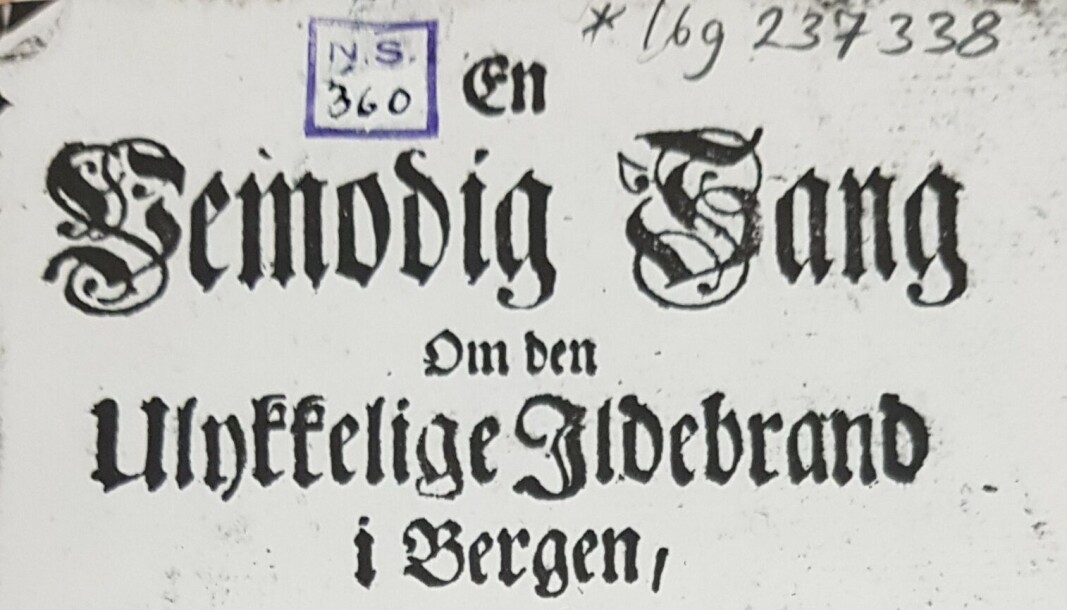 * lbg 237338
N.S.
360
En
Vemodig Sang
Om den
Ulykkelige Ildebrand
i Bergen,